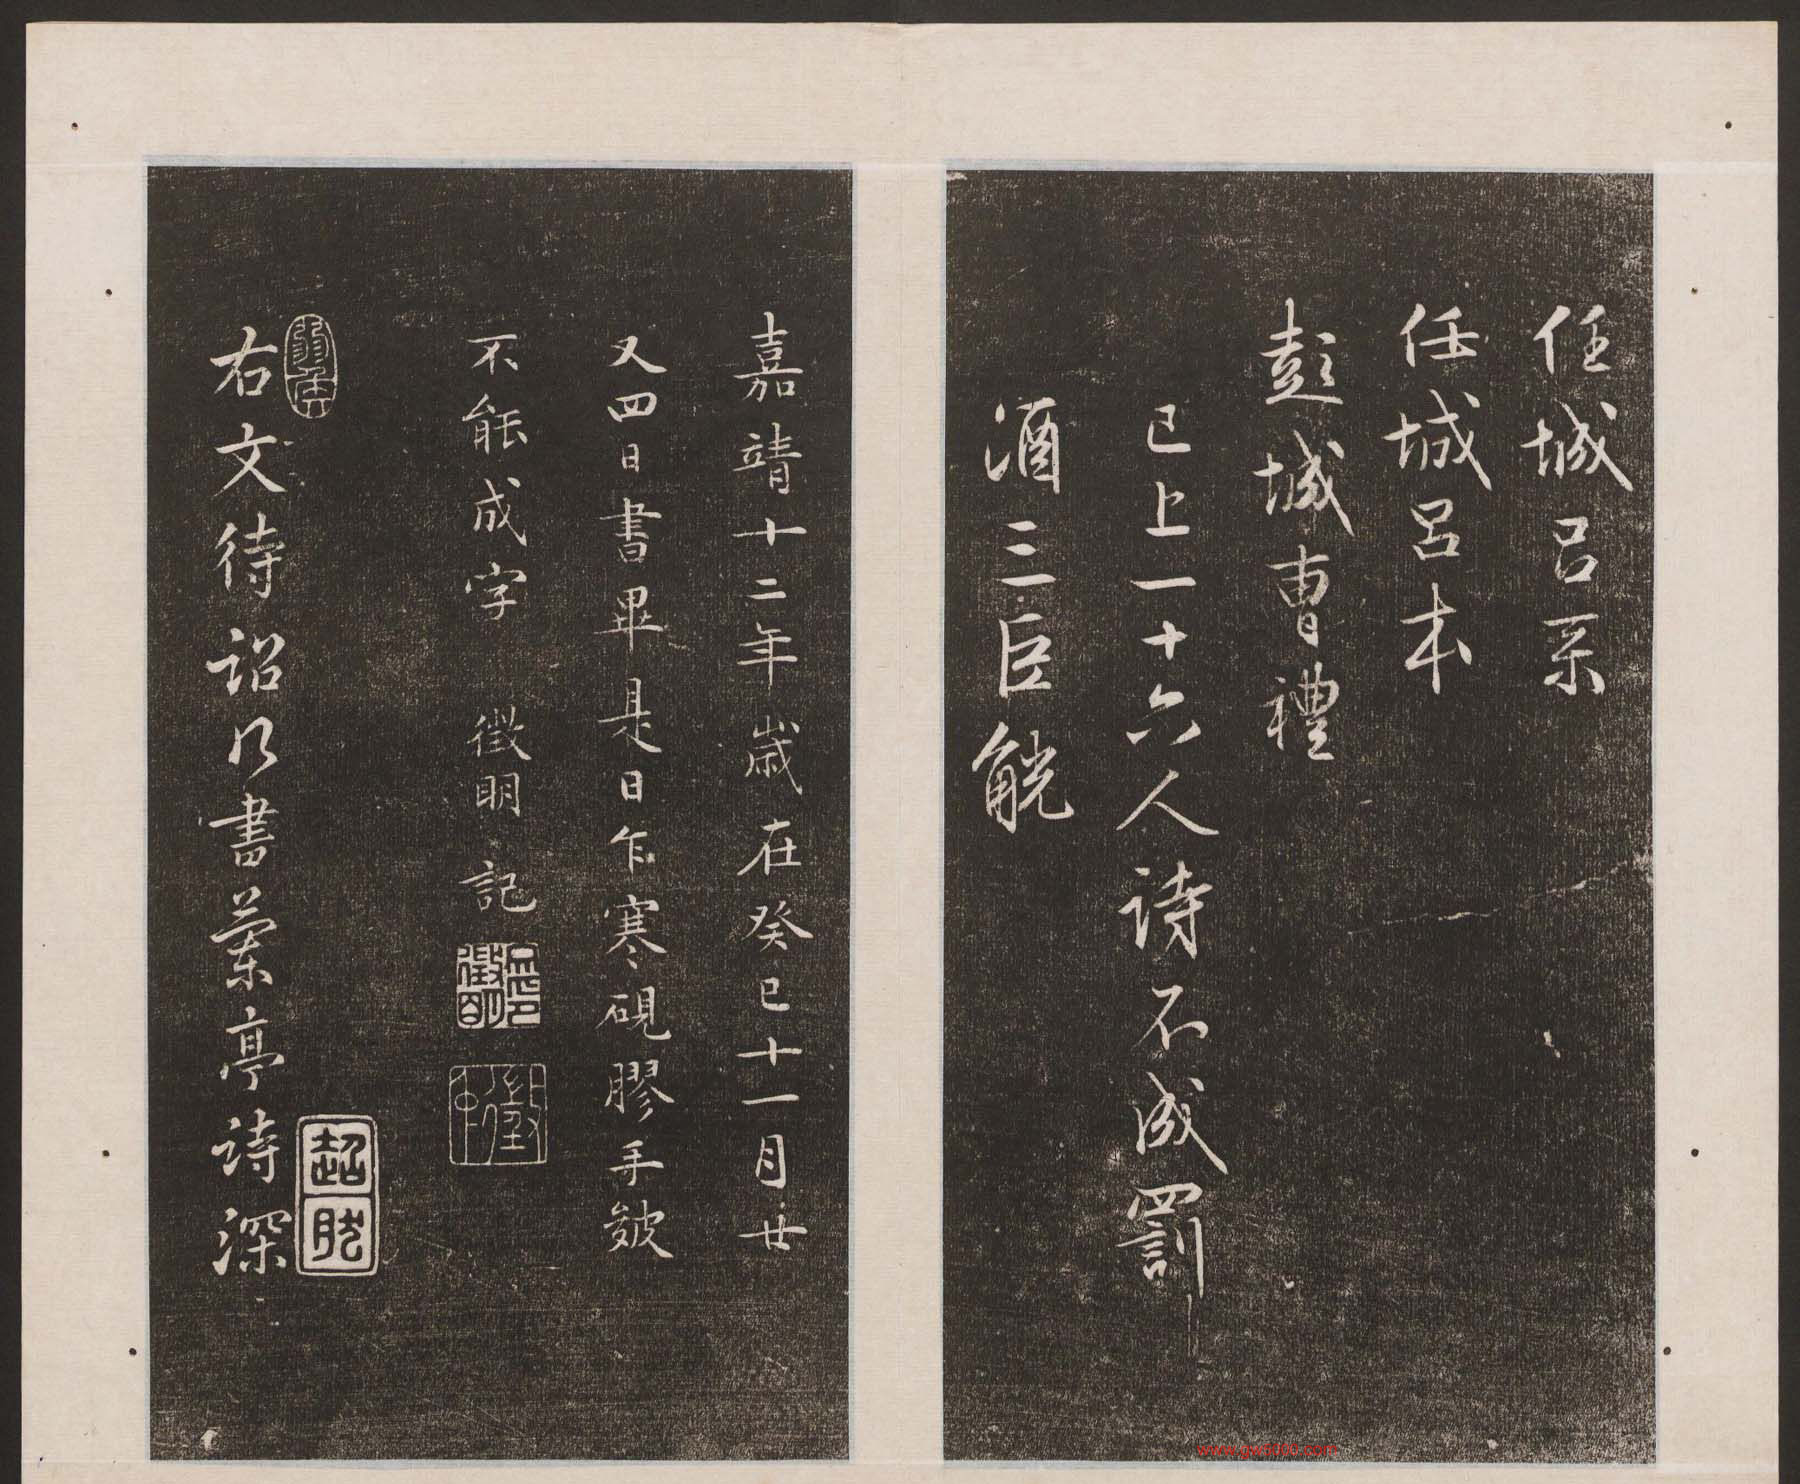 任城吕系
任城呂本
彭城曹禮
已上一十六人詩不成罰
酒三巨觥
嘉靖十二年歲在癸巳十一月廿
又四日書畢是日乍寒硯膠手皴
不能成字 徵明記
右文待詔所書蘭亭詩深
www.gw5000.com